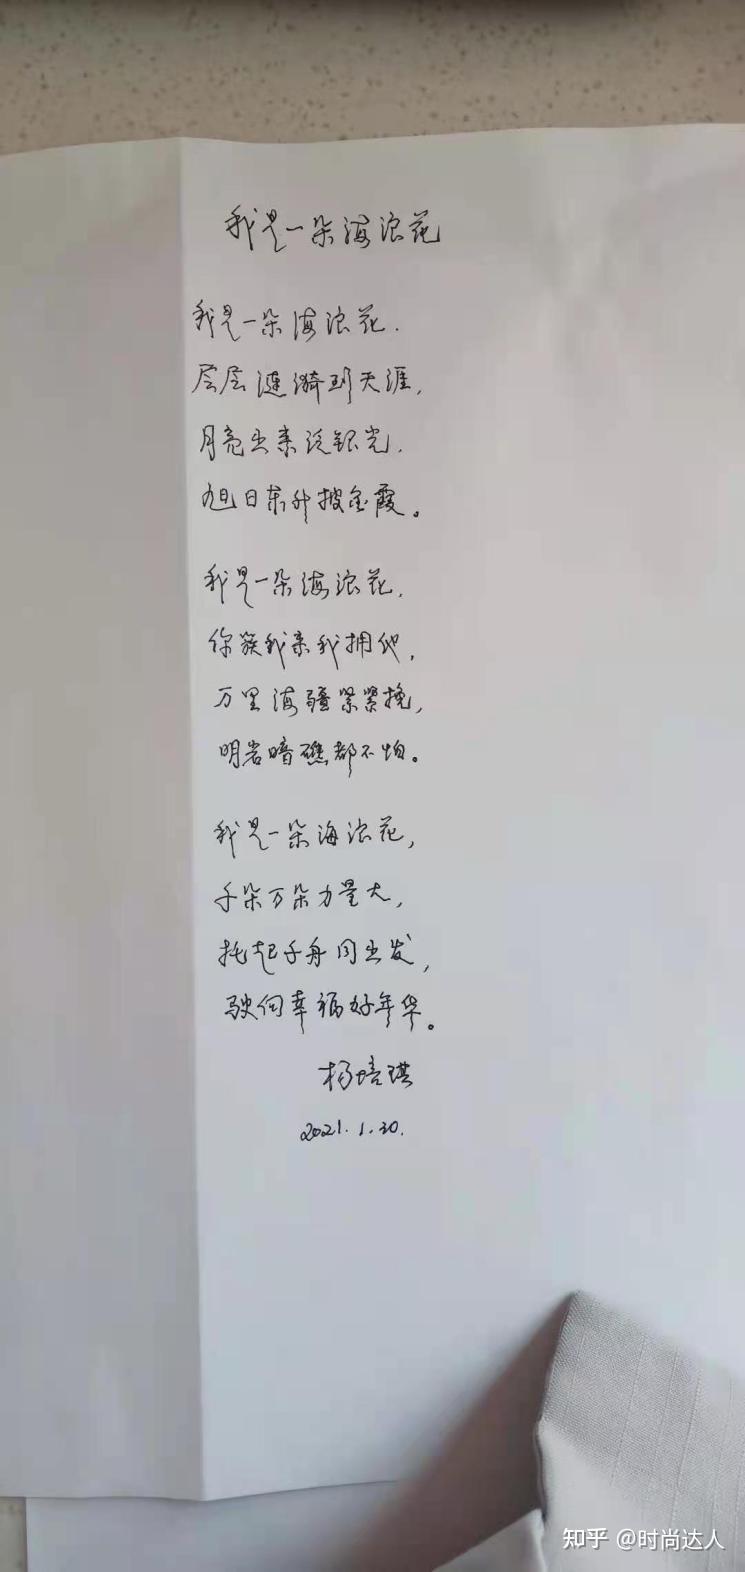 我是一朵海浪花
我是一朵海浪花.
层层涟漪到天涯,
月亮出来泛银光.
旭日东升披金霞。
我是一朵海浪花.
你簇我来我拥他,
万里海疆紧紧挽,
明岩暗礁都不怕。
我是一朵海浪花,
千朵万朵力量大,
托起千舟同出发,
驶向幸福好年华。
杨培琪
2021.1.30.
知乎 @时尚达人